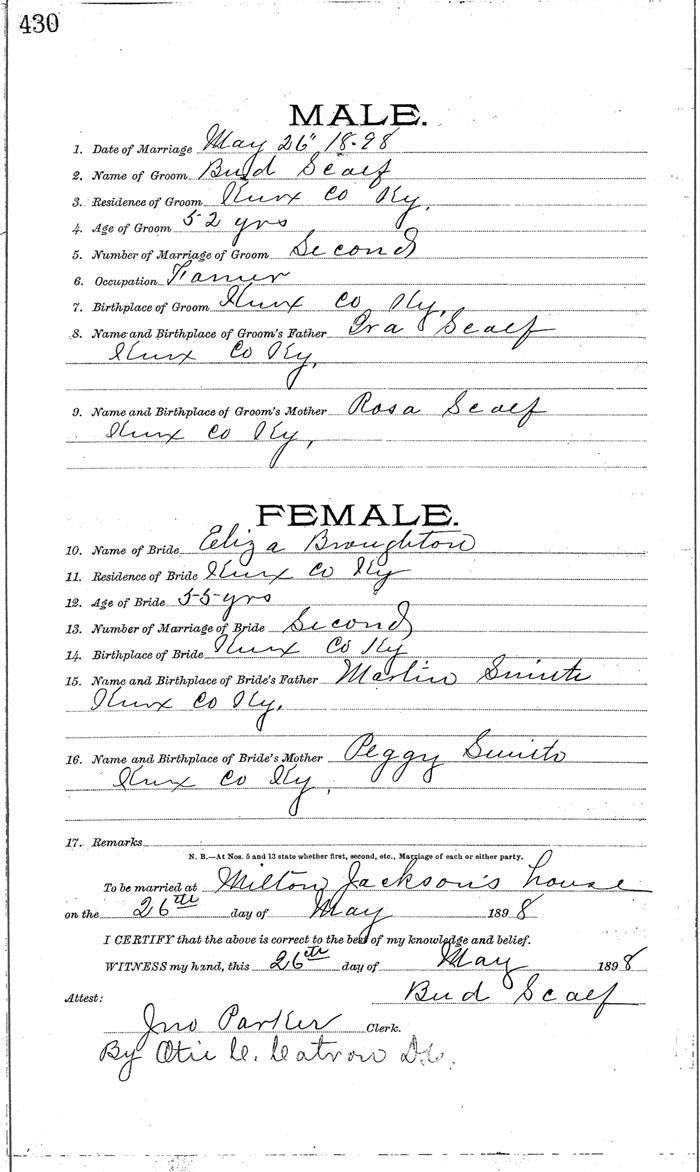 430
MALE.
1. Date of Marriage May 26" 1898
2. Name of Groom Bud Scalf
3. Residence of Groom Knox Co Ky,
4. Age of Groom 52 yrs
5. Number of Marriage of Groom Second
6. Occupation Farmer
7. Birthplace of Groom Knox Co Ky,
8. Name and Birthplace of Groom's Father Ira Scalf
Knox Co Ky,
9. Name and Birthplace of Groom's Mother Rosa Scalf
Knox Co Ky,
FEMALE.
10. Name of Bride Eliza Broughton
11. Residence of Bride Knox Co Ky
12. Age of Bride 55 yrs
13. Number of Marriage of Bride Second
14. Birthplace of Bride Knox Co Ky
15. Name and Birthplace of Bride's Father Smith
Knox Co Ky.
16. Name and Birthplace of Bride's Mother Peggy Smith
Knox Co Ky,
17. Remarks
N. B.—At Nos. 5 and 13 state whether first, second, etc., Marriage of each or either party.
To be married at Milton Jackson's house
on the 26th day of May 1898
I CERTIFY that the above is correct to the best of my knowledge and belief.
WITNESS my hand, this 26th day of May 1898
Bud Scalf
Attest:
Jno Parker Clerk.
By Otie C. Catron D.C.